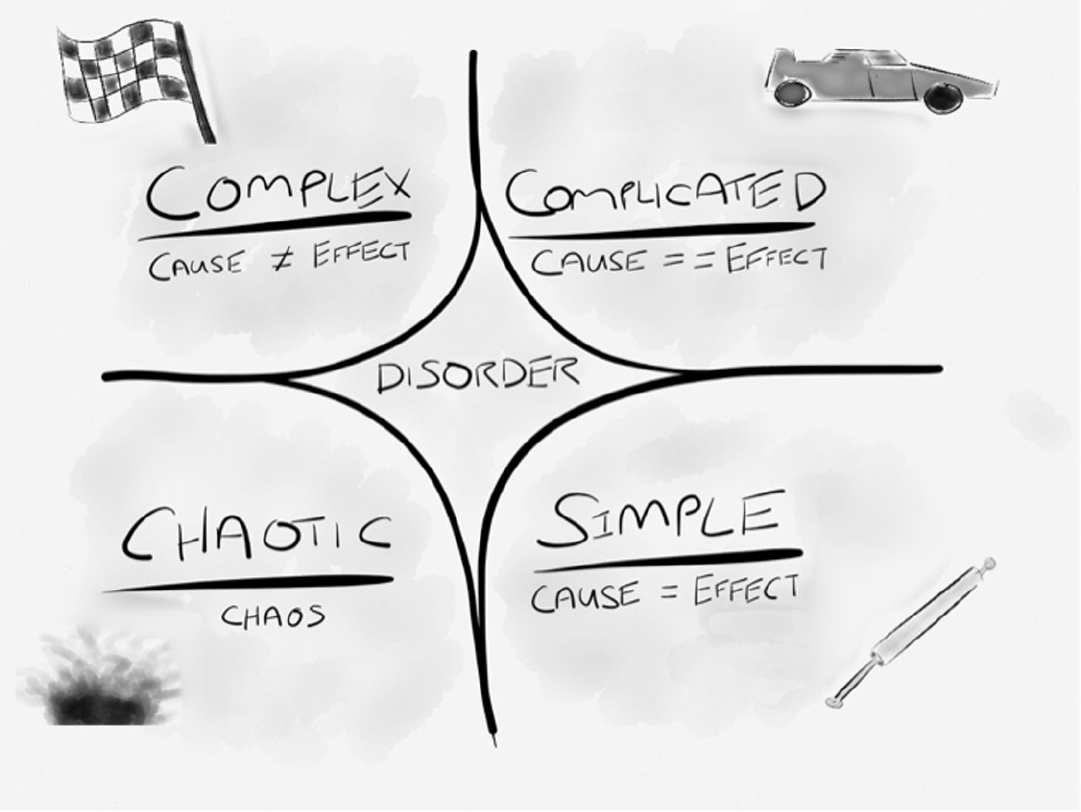 COMPLEX
CAUSE ≠ EFFECT
COMPLICATED
CAUSE == EFFECT
DISORDER
CHAOTIC
CHAOS
SIMPLE
CAUSE = EFFECT